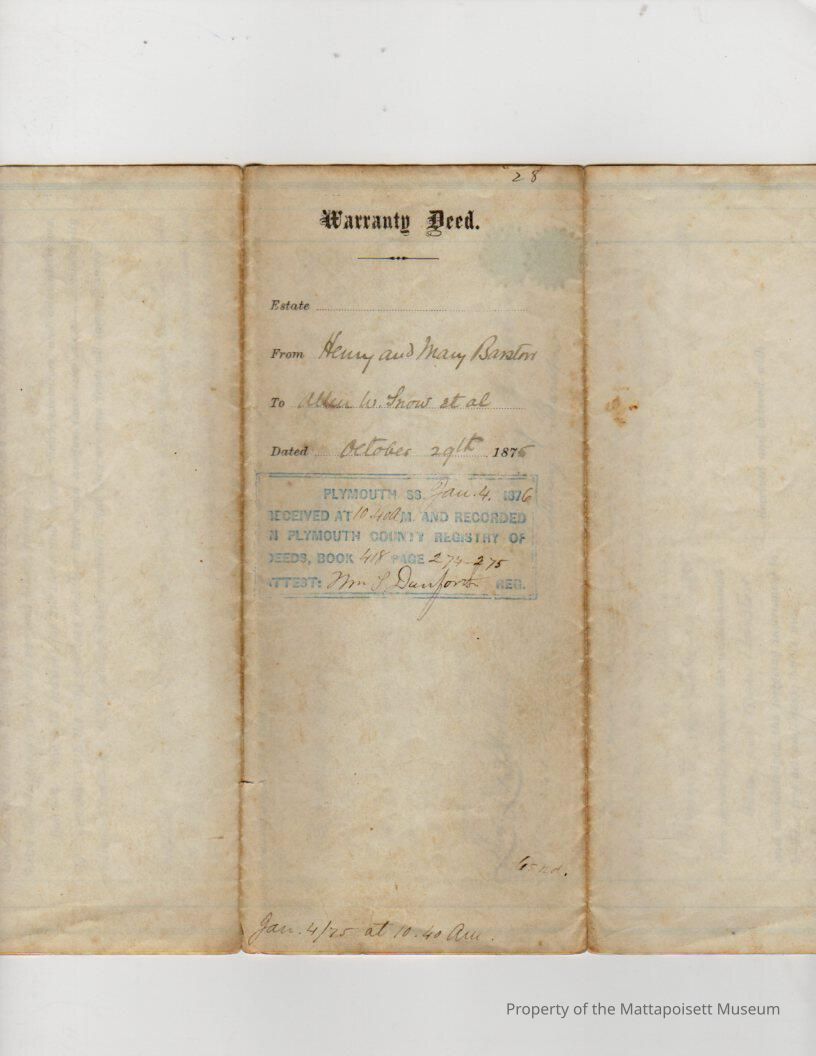 28
Warranty Deed.
Estate
From Henry and Mary Barstow
To Allen W. Snow et al
Dated October 29th 1875
PLYMOUTH SS. Jan. 4. 1876
RECEIVED AT 10.40 A M. AND RECORDED
IN PLYMOUTH COUNTY REGISTRY OF
DEEDS, BOOK 418 PAGE 274-275
ATTEST: Wm S. Danforth REG.
Jan. 4/75 at 10.40 Am.
Property of the Mattapoisett Museum